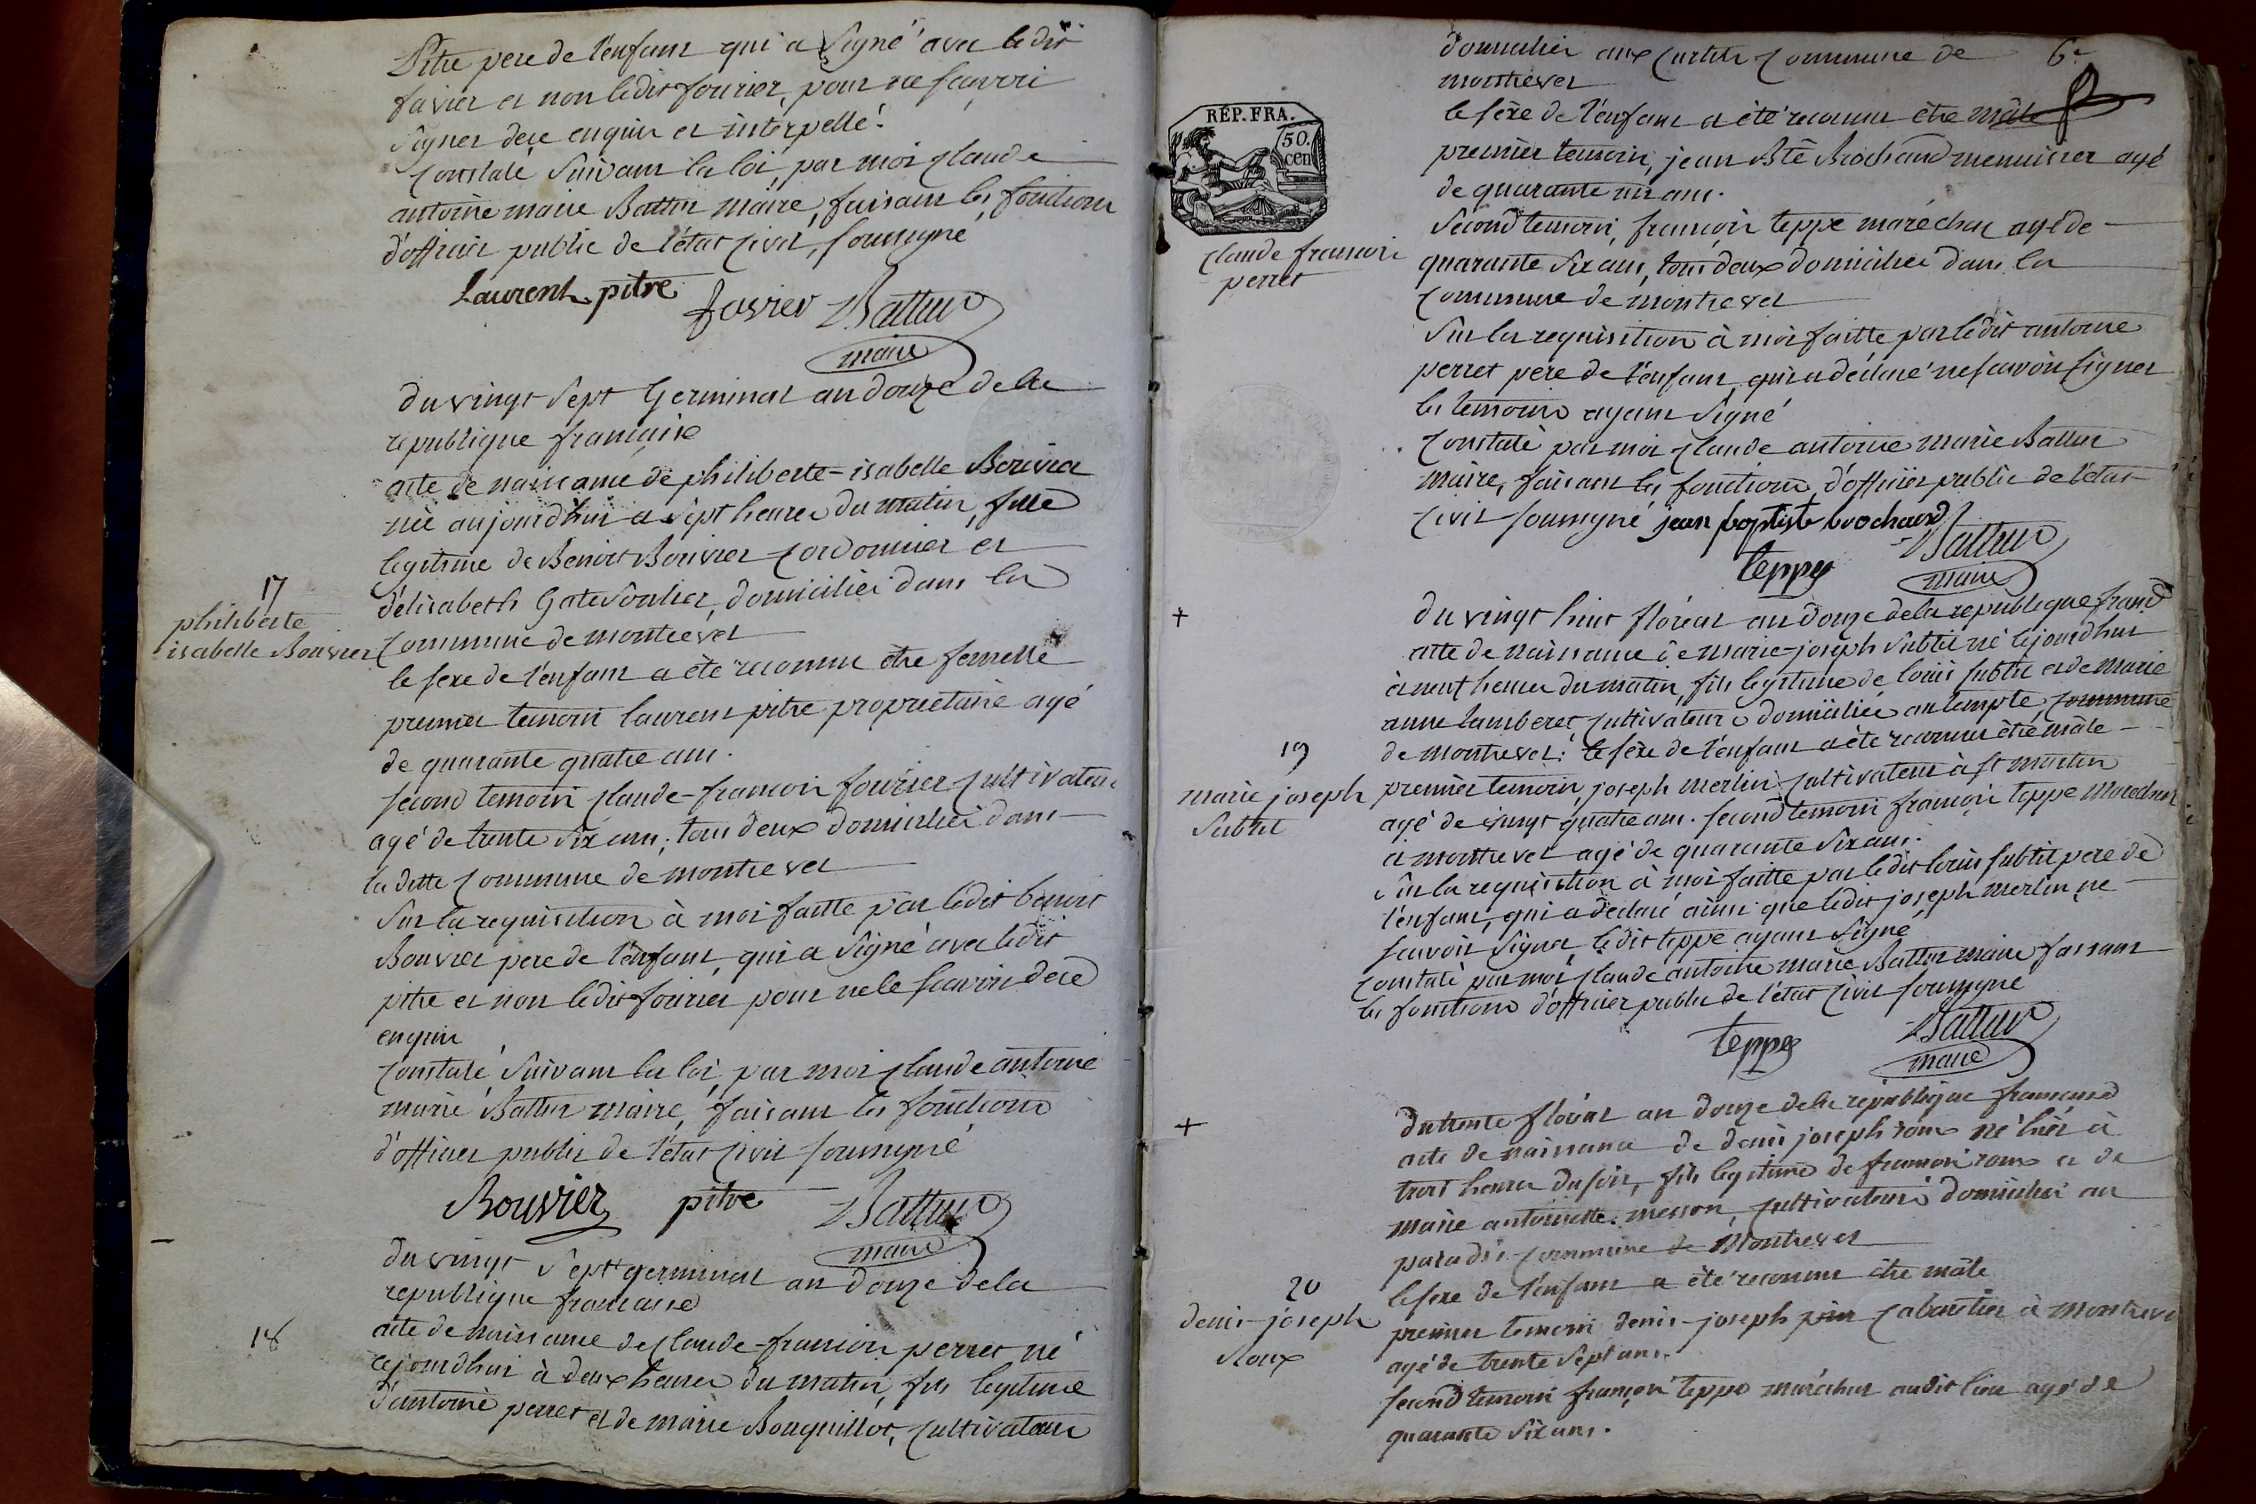 Pitre pere de l'enfant qui a signé avec ledit
favier et non ledit fourier, pour ne scavoir
signer de ce enquis et interpellé.
Constaté suivant la loi, par moi Claude
antoine marie Battur maire, faisant les fonctions
d'officier public de l'état civil, soussigné
Laurent pitre favier Battur
maire
du vingt sept Germinal an douze de la
republique française
acte de naissance de philiberte-isabelle Bouvier
née aujourd'hui a sept heures du matin, fille
legitime de Benoit Bouvier Cordonnier et
d'élisabeth Gatesoulier, domiciliés dans la
17
philiberte
isabelle Bouvier
Commune de montrevel
le sexe de l'enfant a été reconnu être femelle
premier temoin laurent pitre proprietaire agé
de quarante quatre ans.
second temoin Claude-francois fourier Cultivateur
agé de trente six ans; tous deux domiciliés dans
la ditte Commune de montrevel
Sur la requisition à moi faitte par ledit benoit
Bouvier pere de l'enfant, qui a signé avec ledit
pitre et non ledit fourier pour ne le scavoir de ce
enquis
Constaté, suivant la loi, par moi Claude antoine
marie Battur maire, faisant les fonctions
d'officier public de l'état civil soussigné
Bouvier pitre Battur
maire
du vingt sept germinal an douze de la
republique francaise
18
acte de naissance de Claude-francois perret né
cejourdhui à deux heures du matin, fils legitime
d'antoine perret et de marie Bouquillot, Cultivateurs
6e
domiciliés aux Commune de
montrevel
le sexe de l'enfant a été reconnu être mâle
RÉP. FRA.
50.
cen
premier temoin, jean Bte Brochand menuisier agé
de quarante un ans.
Second temoin, françois teppe maréchal agé de
claude francois
perret
quarante six ans, tous deux domiciliés dans la
Commune de montrevel
Sur la requisition à moi faitte par ledit antoine
perret pere de l'enfant, qui a déclaré ne scavoir signer
les temoins ayant signé
Constaté par moi Claude antoine marie Battur
maire, faisant les fonctions d'officier public de l'état
civil soussigné jean baptiste brochand
teppe Battur
maire
du vingt huit floréal an douze de la republique franc
acte de naissance de marie-joseph subtil né cejourdhui
à neuf heures du matin, fils legitime de louis subtil et de marie
anne lamberet, Cultivateurs domiciliés au temple, Commune
de montrevel: le sexe de l'enfant a été reconnu être mâle
19
marie joseph
Subtil
premier temoin, joseph merlin Cultivateur à st martin
agé de vingt quatre ans. second temoin françois teppe marechal
à montrevel agé de quarante six ans.
Sur la requisition à moi faitte par ledit louis subtil pere de
l'enfant, qui a déclaré ainsi que ledit joseph merlin ne
scavoir signer, ledit teppe ayant signé
Constaté par moi Claude antoine marie Battur maire faisant
les fonctions d'officier public de l'état civil soussigné
teppe Battur
maire
du trente floréal an douze de la république francaise
acte de naissance de denis joseph roux né hier à
trois heures du soir, fils legitime de francois roux et de
marie antoinette messon, Cultivateurs domiciliés au
paradis Commune de Montrevel
le sexe de l'enfant a été reconnu être mâle
20
denis-joseph
Roux
premier temoin denis-joseph Cabaretier à Montrevel
agé de trente sept ans.
second temoin françois teppe maréchal audit lieu agé de
quarante six ans.